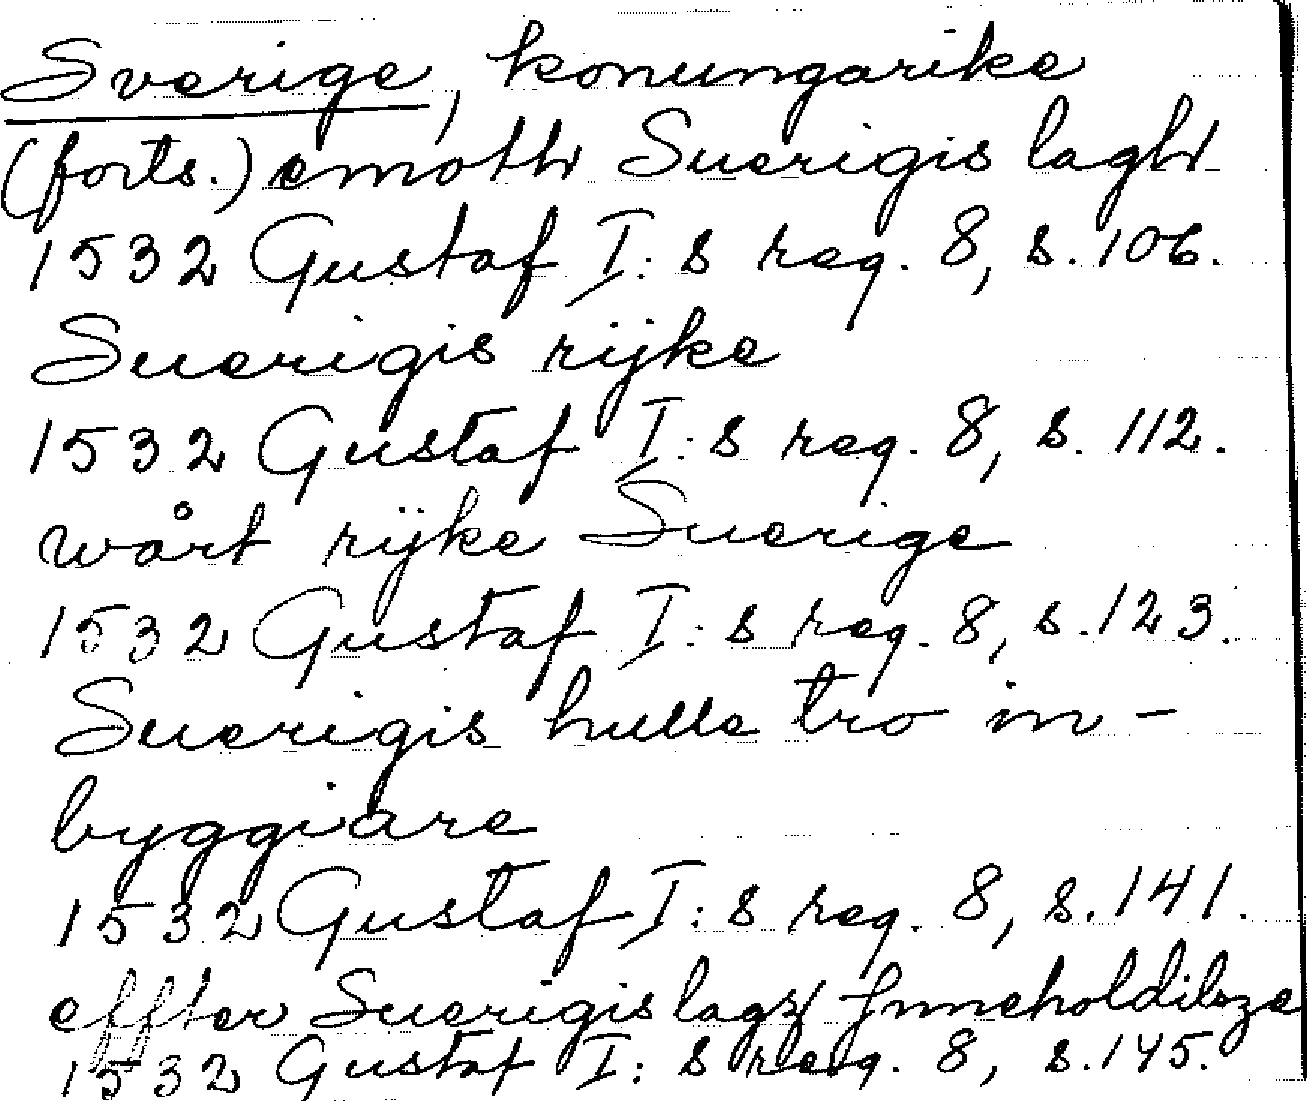 Sverige, konungarike
(forts.) emoth Suerigis lagh
1532 Gustaf I:s reg. 8, s. 106.
Suerigis rijke
1532 Gustaf I:s reg. 8, s. 112.
wårt rijke Suerige
1532 Gustaf I:s reg. 8, s. 123.
Suerigis hulle tro in-
byggiare
1532 Gustaf I:s reg. 8, s. 141.
effter Suerigis lagz Jnneholdilsze
1532 Gustaf I:s reg. 8, s. 145.